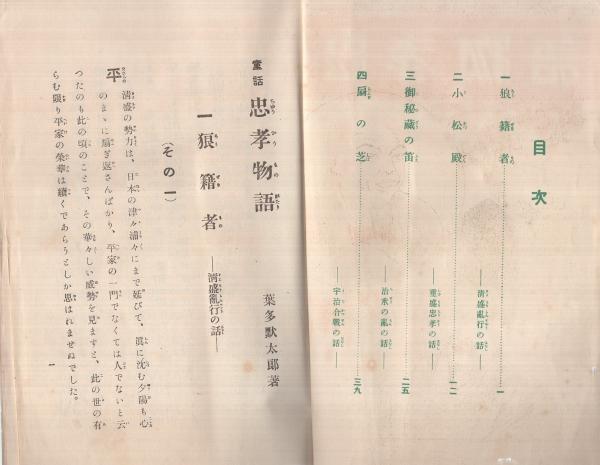 目次
一 狼藉者
――清盛亂行の話――
一
二 小松殿
――重盛忠孝の話――
一二
三 御秘蔵の笛
――治承の亂の話――
二五
四 扇の芝
――宇治合戰の話――
三九
童話 忠孝物語
葉多默太郎著
一 狼藉者
――清盛亂行の話――
(その一)
平清盛の勢力は、日本の津々浦々にまで延びて、眞に沈む夕陽も心
のまゝに扇ぎ返さんばかり、平家の一門でなくては人でないと云
つたのも此の頃のことで、その華々しい威勢を見ますと、此の世の有
らむ限り平家の榮華は續くであらうとしか思はれませぬでした。
一